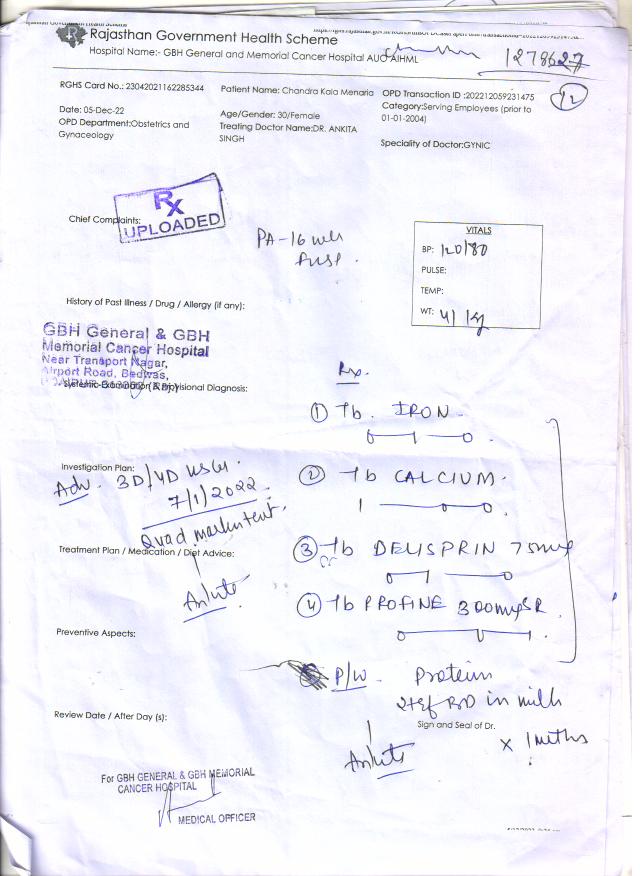 Rajasthan Government Health Scheme
Hospital Name:- GBH General and Memorial Cancer Hospital AUO AIHML
1278627
RGHS Card No.: 23042021162285344
Patient Name: Chandra Kala Menaria
OPD Transaction ID :202212059231475
12
Category:Serving Employees (prior to
01-01-2004)
Date: 05-Dec-22
Age/Gender: 30/Female
OPD Department:Obstetrics and
Gynaceology
Treating Doctor Name:DR. ANKITA
SINGH
Speciality of Doctor:GYNIC
Rx
UPLOADED
Chief Complaints:
PA-16 wks
VITALS
BP: 120/80
PULSE:
TEMP:
WT: 41 kg
History of Past Illness / Drug / Allergy (if any):
GBH General & GBH
Memorial Cancer Hospital
Near Transport Nagar,
Airport Road, Bedwas,
Systemic Examination / Provisional Diagnosis:
Rx.
1 Tb. IRON
0 1 0
Investigation Plan:
Adv. 3D/4D
7/1/2022
Quad marker test.
2 Tb CALCIUM
1 0 0
Treatment Plan / Medication / Diet Advice:
3 Tb DELISPRIN 75mg
0 1 0
Ankita
4 Tb PROFINE 300mg SR
0 1
Preventive Aspects:
P/W. Protein
BD in milk
Review Date / After Day (s):
Sign and Seal of Dr.
Ankita
For GBH GENERAL & GBH MEMORIAL
CANCER HOSPITAL
MEDICAL OFFICER